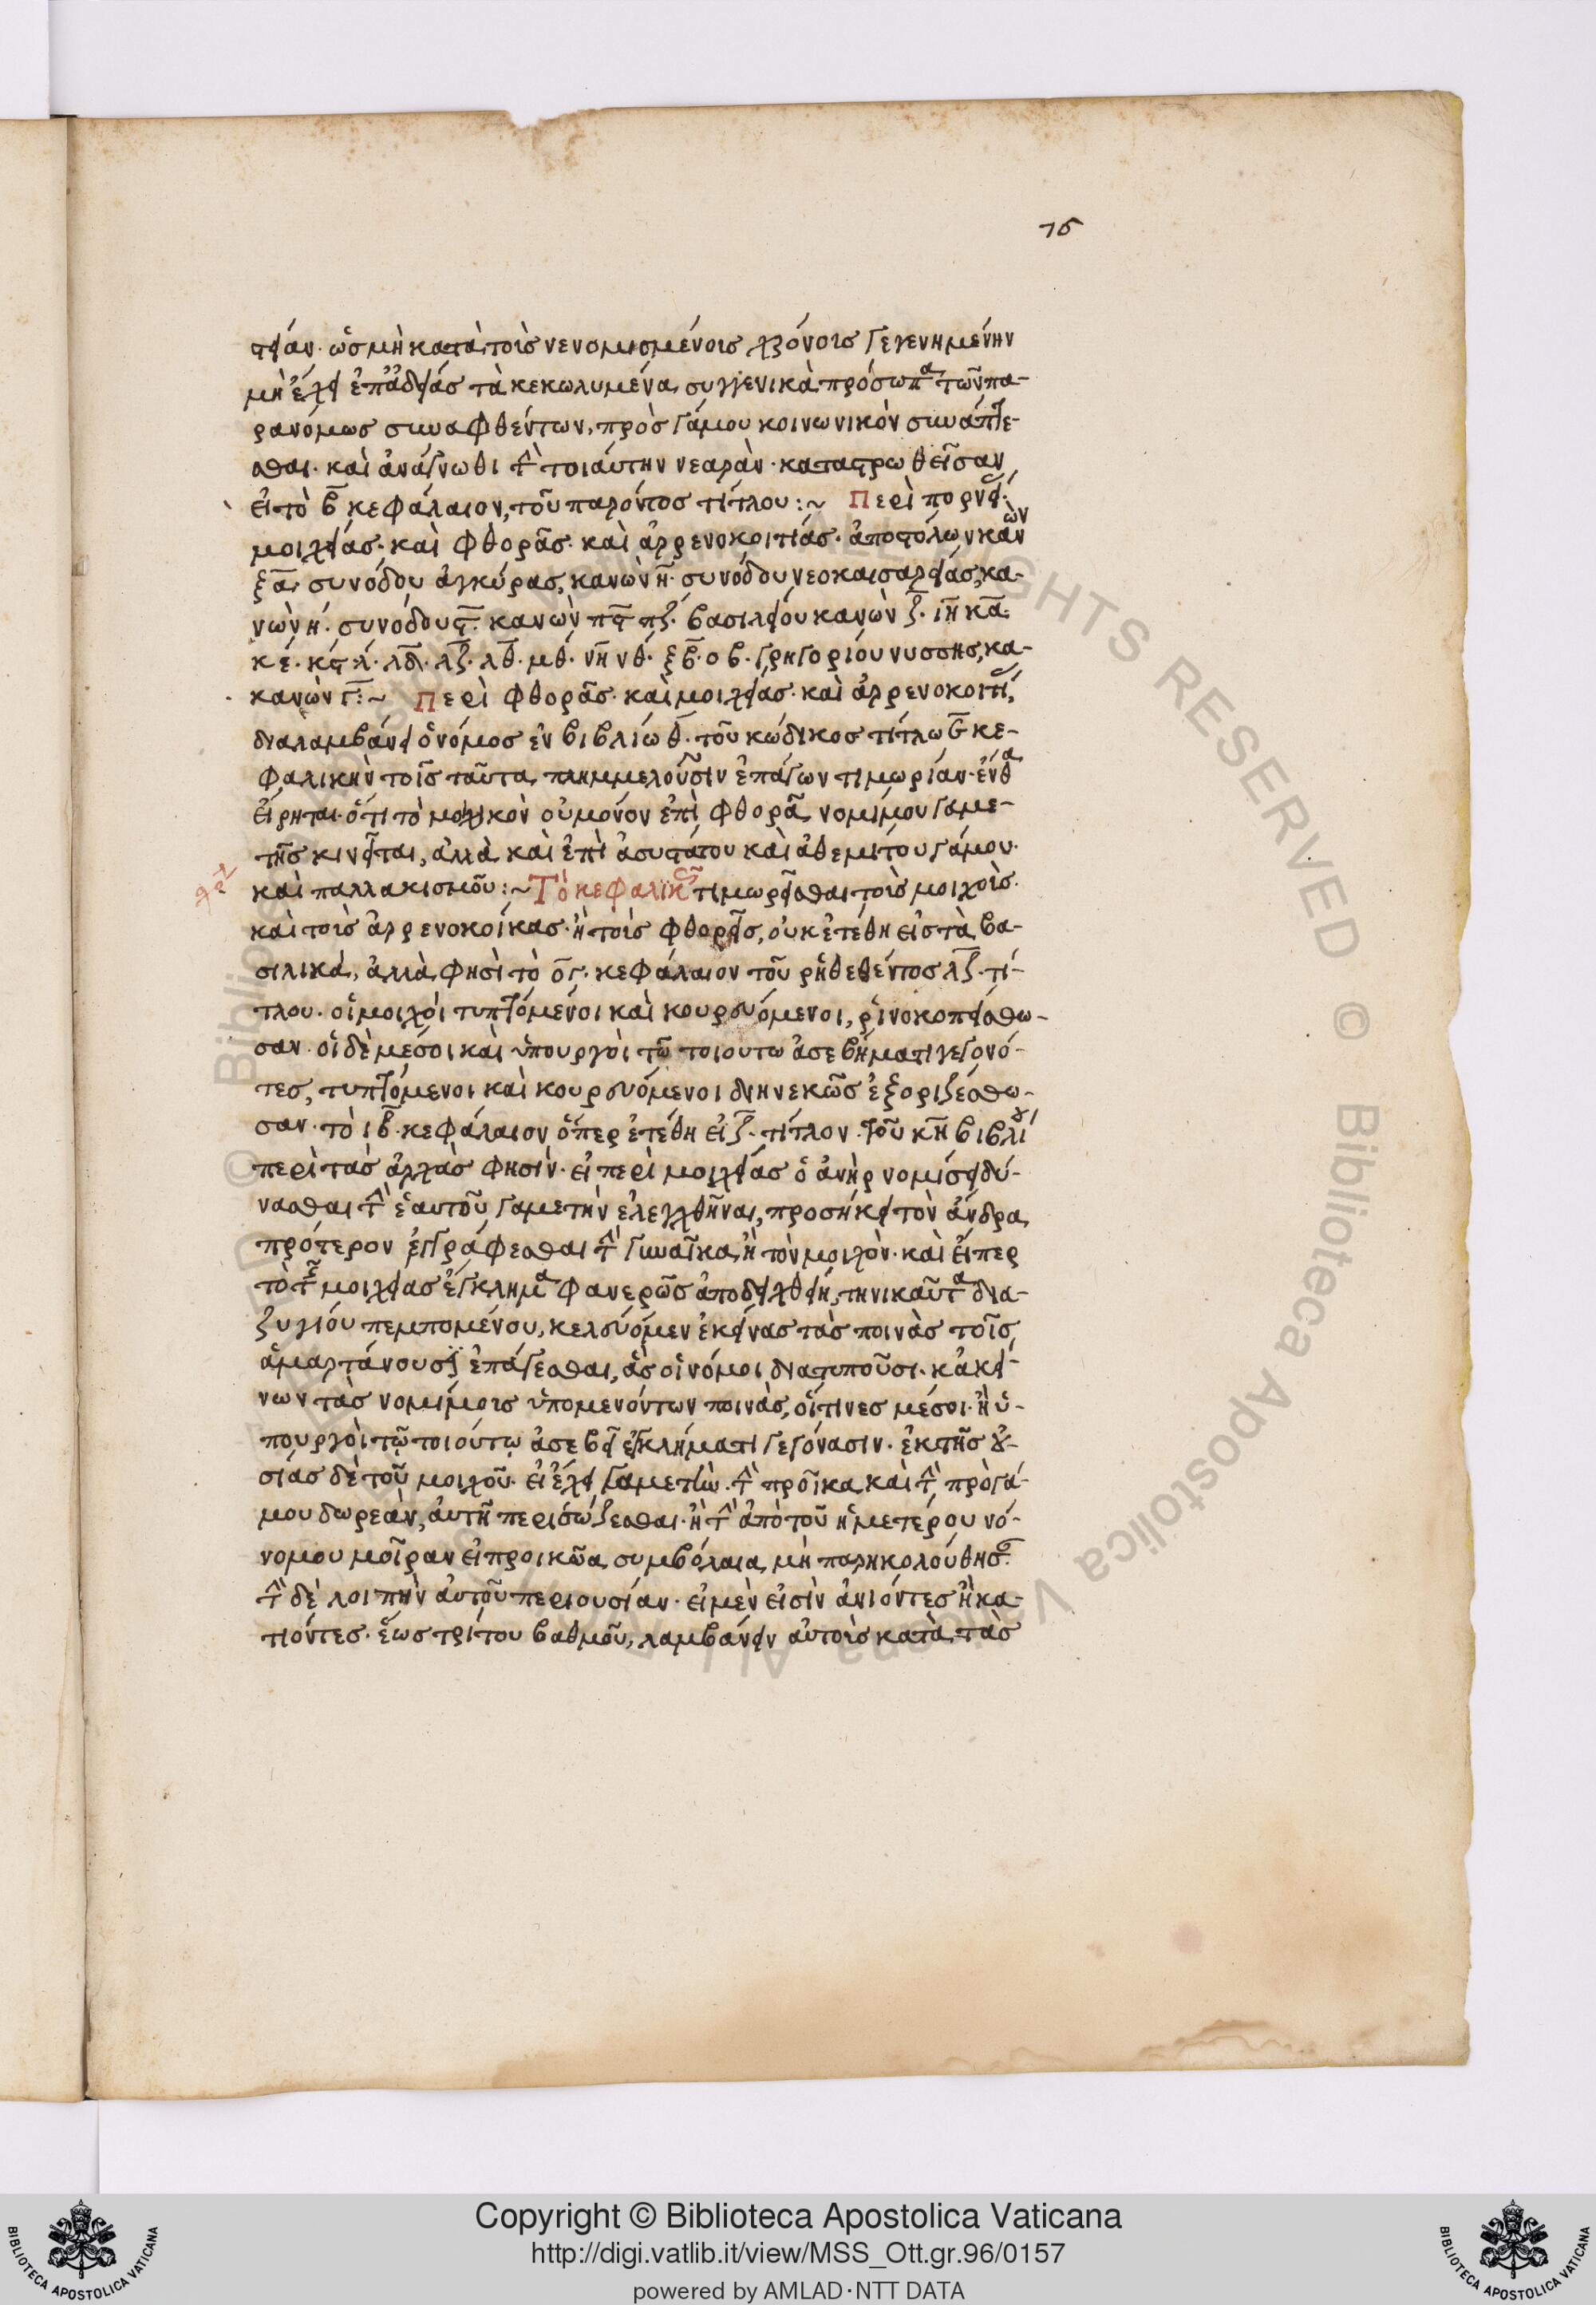 76
στείαν· ὡς μὴ κατὰ τοὺς νενομισμένους χρόνους γεγενημένην
μὴ ἔχει ἐπ' ἀδείας τὰ κεκωλυμένα συγγενικὰ πρόσωπα τῶν πα-
ρανόμως συναφθέντων, πρὸς γάμου κοινωνικὸν συνάπτε-
σθαι· καὶ ἀνάγνωθι τὴν τοιαύτην νεαρὰν· καταστρωθεῖσαν
εἰ τὸ β̅ κεφάλαιον, τοῦ παρόντος τίτλου :~ Περὶ πορνεί·
μοιχείας· καὶ φθορᾶς· καὶ ἀρρενοκοιτίας· ἀποστόλων κανὼν
ξα̅. συνόδου ἀγκύρας, κανὼν η̅· συνόδου νεοκαισαρείας, κα-
νὼν η· συνόδου ς̅· κανὼν πς̅ πζ· βασιλείου κανὼν ζ̅· ιη̅ κα̅.
κέ· κς λ· λδ̅· λζ̅· λθ̅· μθ· νη̅ νθ· ξβ̅· οβ· γρηγορίου νύσσης, κα-
κανὼν γ̅ :~ Περὶ φθορᾶς· καὶ μοιχείας· καὶ ἀρρενοκοιτί,
διαλαμβάνει ὁ νόμος ἐν βιβλίω θ̅· τοῦ κώδικος τίτλω θ̅ κε-
φαλικὴν τοῖς ταῦτα πλημμελοῦσιν ἐπάγων τιμωρίαν· ἔνθα
εἴρηται· ὅτι τὸ μοιχικὸν οὐ μόνον ἐπὶ φθορᾶ νομίμου γαμε-
τῆς κινεῖται, ἀλλὰ καὶ ἐπὶ ἀσυστάτου καὶ ἀθεμίτου γάμου·
καὶ παλλακισμοῦ :~ Τὸ κεφαλικῶς τιμωρεῖσθαι τοὺς μοιχοὺς·
καὶ τοὺς ἀρρενοκοίκας· ἢ τοὺς φθορεῖς, οὐκ ἐτέθη εἰς τὰ βα-
σιλικά, ἀλλὰ φησὶ τὸ ογ· κεφάλαιον τοῦ ῥηθεθέντος λζ̅· τί-
τλου· οἱ μοιχοὶ τυπτόμενοι καὶ κουρευόμενοι, ῥινοκοπείσθω-
σαν· οἱ δὲ μέσοι καὶ ὑπουργοὶ τῶ τοιουτω ἀσεβήματι γεγονό-
τες, τυπτόμενοι καὶ κουρευόμενοι διηνεκῶς ἐξοριζέσθω-
σαν· τὸ ιβ̅· κεφάλαιον ὅπερ ἐτέθη εἰ ζ̅· τίτλον· τοῦ κη̅ βιβλίου
περὶ τὰς ἀρχὰς φησὶν· εἰ περὶ μοιχείας ὁ ἀνὴρ νομίσει δύ-
νασθαι τὴν ἑαυτοῦ γαμετὴν ἐλεγχθῆναι, προσήκει τὸν ἄνδρα
πρότερον ἐγγράφεσθαι τὴν γυναῖκα, ἢ τὸν μοιχὸν· καὶ εἴπερ
τὸ τῆς μοιχείας ἔγκλημα φανερῶς ἀποδειχθείη, τηνικαῦτα δια-
ζυγίου πεμπομένου, κελεύομεν ἐκείνας τὰς ποινὰς τοῖς
ἁμαρτάνουσι ἐπάγεσθαι, ἃς οἱ νόμοι διατυποῦσι· κἀκεί-
νων τὰς νομίμους ὑπομενόντων ποινὰς, οἵτινες μέσοι· ἢ ὑ-
πουργοὶ τῷ τοιούτῳ ἀσεβεῖ ἐγκλήματι γεγόνασιν· ἐκ τῆς οὐ-
σίας δὲ τοῦ μοιχοῦ· εἰ ἔχει γαμετὴν· τὴν προῖκα καὶ τὴν πρὸ γά-
μου δωρεὰν, αὐτῆ περισώζεσθαι· ἢ τὴν ἀπὸ τοῦ ἡμετέρου νό-
νομου μοῖραν εἰ προικῶα συμβόλαια μὴ παρηκολούθησε·
τὴν δὲ λοιπὴν αὐτοῦ περιουσίαν· εἰ μὲν εἰσὶν ἀνιόντες ἢ κα-
τιόντες· ἕως τρίτου βαθμοῦ, λαμβάνειν αὐτοὺς κατὰ τὰς
© Biblioteca Apostolica Vaticana ALL RIGHTS RESERVED
Copyright © Biblioteca Apostolica Vaticana
http://digi.vatlib.it/view/MSS_Ott.gr.96/0157
powered by AMLAD·NTT DATA
BIBLIOTECA APOSTOLICA VATICANA
BIBLIOTECA APOSTOLICA VATICANA